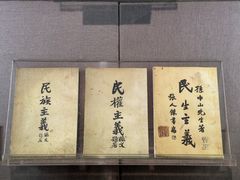 民族主義
孫文
民權主義
孫文
孫中山先生著
民生主義
張人傑書